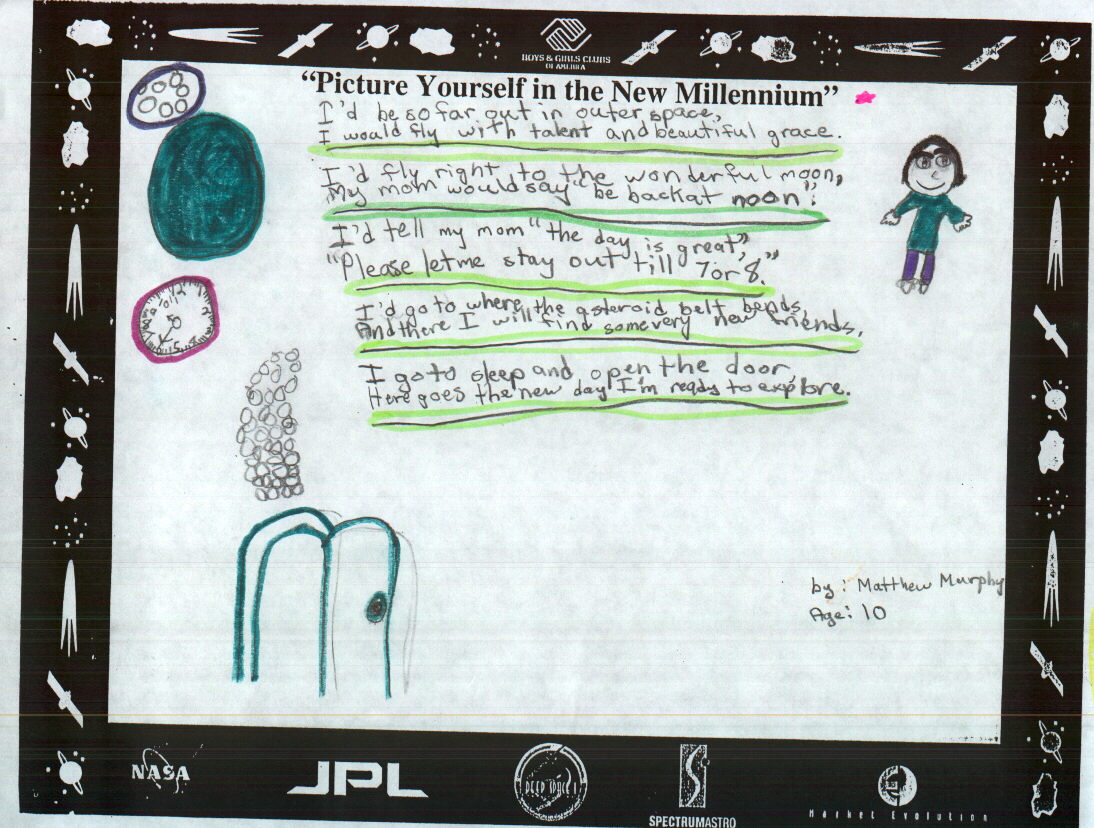 BOYS & GIRLS CLUBS
OF AMERICA
"Picture Yourself in the New Millennium"
I'd be so far out in outer space,
I would fly with talent and beautiful grace.
I'd fly right to the wonderful moon,
My mom would say "be back at noon".
I'd tell my mom "the day is great",
"Please let me stay out till 7 or 8."
I'd go to where the asteroid belt bends,
And there I will find some very new friends.
I go to sleep and open the door,
Here goes the new day I'm ready to explore.
by: Matthew Murphy
Age: 10
NASA
JPL
DEEP SPACE 1
SPECTRUMASTRO
Market Evolution